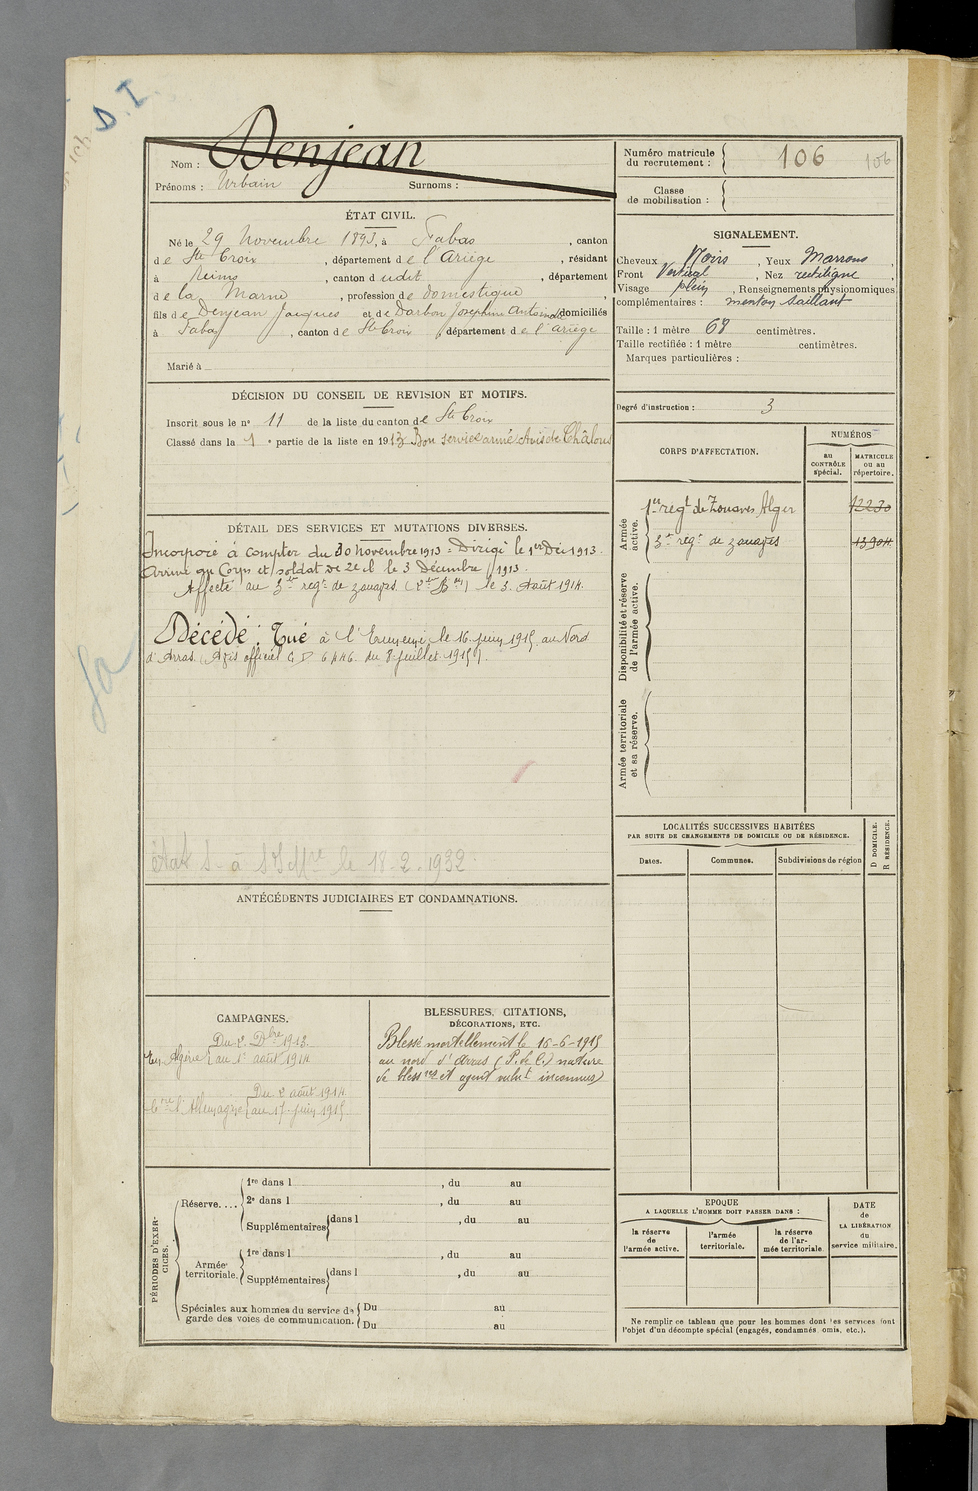 D. I.
Nom : Denjean
Prénoms : Urbain Surnoms :
Numéro matricule du recrutement : 106 106
Classe de mobilisation :
ÉTAT CIVIL.
Né le 29 Novembre 1893, à Fabas, canton
de Ste Croix, département de l'Ariège, résidant
à Reims, canton dudit, département
de la Marne, profession de domestique,
fils de Denjean Jacques et de Darbon Josephine Antoinette domiciliés
à Fabas, canton de Ste Croix, département de l'Ariège
Marié à
SIGNALEMENT.
Cheveux Noirs, Yeux Marrons,
Front Vertical, Nez rectiligne,
Visage plein, Renseignements physionomiques
complémentaires : menton saillant
Taille : 1 mètre 68 centimètres.
Taille rectifiée : 1 mètre centimètres.
Marques particulières :
Degré d'instruction : 3
DÉCISION DU CONSEIL DE REVISION ET MOTIFS.
Inscrit sous le n° 11 de la liste du canton de Ste Croix
Classé dans la 1e partie de la liste en 1913 Bon service armé Avis de Châlons
DÉTAIL DES SERVICES ET MUTATIONS DIVERSES.
Incorporé à compter du 30 novembre 1913 = Dirigé le 1er Déc 1913.
Arrivé au Corps et soldat de 2e cl le 3 Décembre 1913.
Affecté au 3e regt de zouaves le 3 Août 1914.
Décédé. Tué à l'Ennemi le 16 juin 1915 au Nord
d'Arras. (Avis officiel G D 6446 du 8 juillet 1915).
le 18-2-1932
CORPS D'AFFECTATION.
NUMÉROS
au CONTRÔLE spécial.
MATRICULE ou au répertoire.
Armée active.
1er regt de Zouaves Alger 12230
3e regt de zouaves 13904
Disponibilité et réserve de l'armée active.
Armée territoriale et sa réserve.
LOCALITÉS SUCCESSIVES HABITÉES
PAR SUITE DE CHANGEMENTS DE DOMICILE OU DE RÉSIDENCE.
Dates. Communes. Subdivisions de région
D DOMICILE.
R RÉSIDENCE.
ANTÉCÉDENTS JUDICIAIRES ET CONDAMNATIONS.
CAMPAGNES.
Du 2 Dbre 1913
En Algérie au 1er août 1914
Du 2 août 1914
Ctre l'Allemagne au 17 juin 1915
BLESSURES, CITATIONS,
DÉCORATIONS, ETC.
Blessé mortellement le 16-6-1915
au nord d'Arras (P. de C.) nature
de blessres et agent vulnt inconnus)
PÉRIODES D'EXERCICES.
Réserve....
1re dans l , du au
2e dans l , du au
Supplémentaires dans l , du au
Armée territoriale.
1re dans l , du au
Supplémentaires dans l , du au
Spéciales aux hommes du service de garde des voies de communication.
Du au
Du au
EPOQUE
A LAQUELLE L'HOMME DOIT PASSER DANS :
la réserve de l'armée active.
l'armée territoriale.
la réserve de l'armée territoriale.
DATE de LA LIBÉRATION du service militaire.
Ne remplir ce tableau que pour les hommes dont les services font
l'objet d'un décompte spécial (engagés, condamnés, omis, etc.).